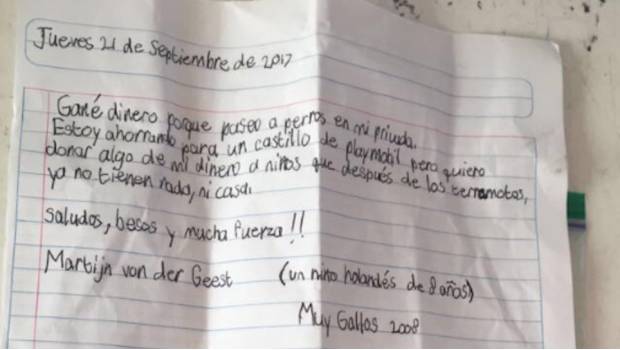 Jueves 21 de Septiembre de 2017
Gané dinero porque paseo a perros en mi privada.
Estoy ahorrando para un castillo de playmobil pero quiero
donar algo de mi dinero a niños que después de los terramotos,
ya no tienen nada, ni casa.
Saludos, besos y mucha fuerza!!
Martijn van der Geest (un niño holandés de 8 años)
Muy Gallos 2008